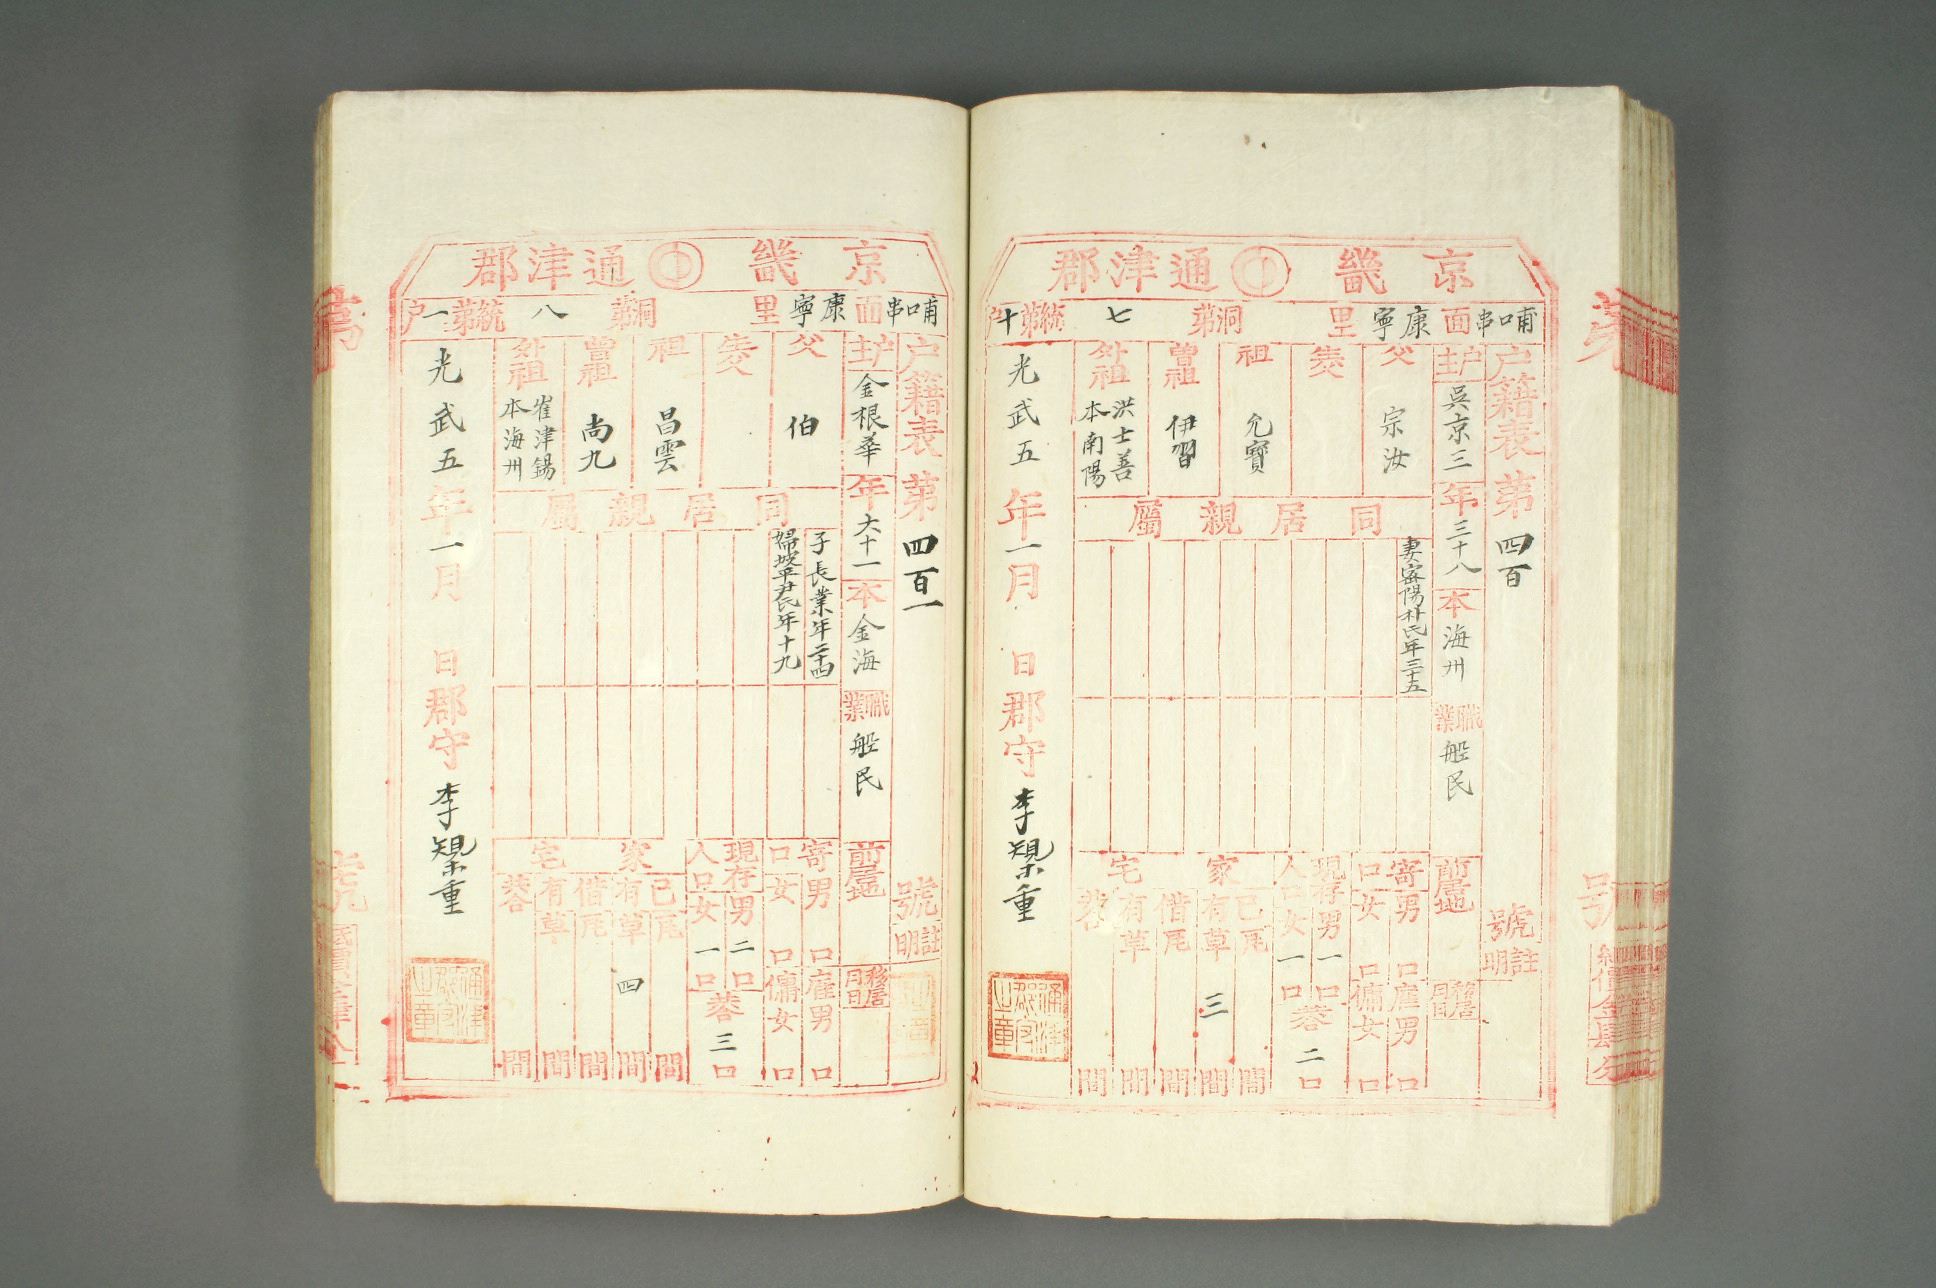 京畿 通津郡
哺口串面康寧里 第洞七統第十户
户籍表第四百號
註明
户主吳京三年三十八本海州職業船民前居地
移居月日
父宗汝
生父
祖允寶
曾祖伊習
外祖洪士善本南陽
同居親屬
妻密陽朴氏年三十五
寄口男口女口
雇男口傭女口
現存人口男一口女一口
共二口
家宅
己瓦間
有草三間
借瓦間
有草間
共間
光武五年一月日郡守李槼重
通津郡守之章
京畿 通津郡
哺口串面康寧里 第洞八統第一户
户籍表第四百一號
註明
户主金根華年六十一本金海職業船民前居地
移居月日
父伯
生父
祖昌雲
曾祖尚九
外祖崔津錫本海州
同居親屬
子長業年二十四
婦坡平尹氏年十九
寄口男口女口
雇男口傭女口
現存人口男二口女一口
共三口
家宅
己瓦間
有草四間
借瓦間
有草間
共間
光武五年一月日郡守李槼重
通津郡守之章